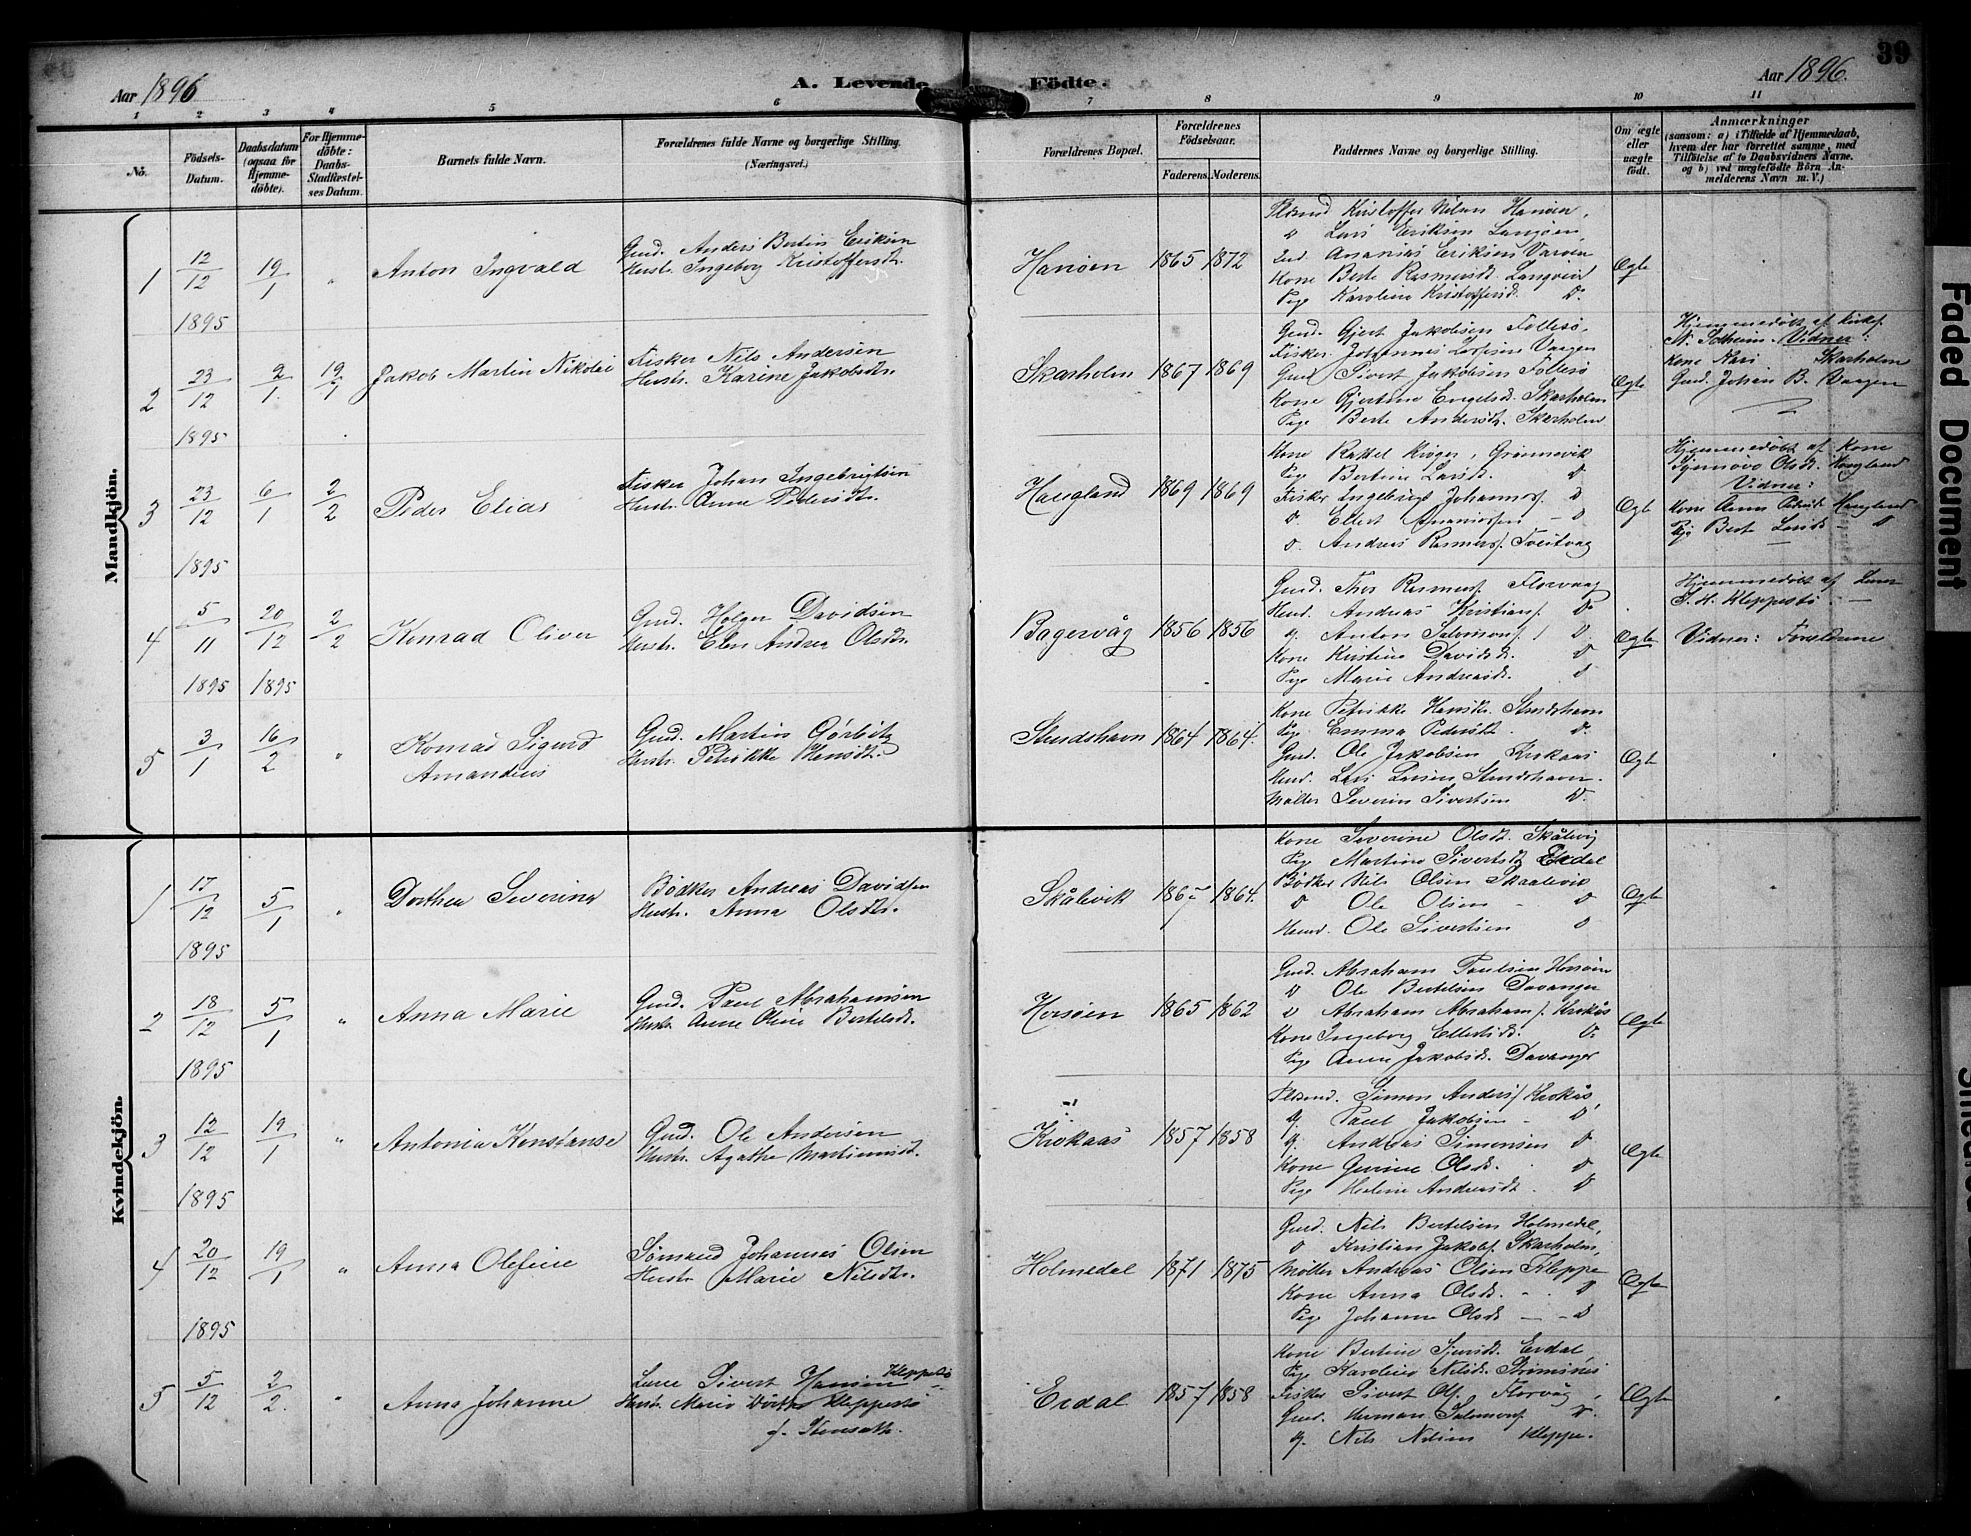 Aar 1896
A. Levende Födte.
Aar 1896.
39
1 2 3 4 5 6 7 8 9 10 11
No.
Födsels-Datum.
Daabsdatum (ogsaa for Hjemme-döbte).
For Hjemme-döbte: Daabs-Stadfæstel-ses Datum.
Barnets fulde Navn.
Forældrenes fulde Navne og borgerlige Stilling.
(Næringsvei.)
Forældrenes Bopæl.
Forældrenes Födselsaar.
Faderens. Moderens.
Faddernes Navne og borgerlige Stilling.
Om ægte eller uægte födt.
Anmærkninger
(saasom: a) i Tilfælde af Hjemmedaab, hvem der har forrettet samme, med Tilföielse af to Daabsvidners Navne. og b) ved uægtefödte Börn An-melderens Navn m. V.)
Mandkjön.
1 12/12 1895 19/1 "
Anton Ingvald
Gmd. Anders Bertin Eriksen
Hustr. Ingeborg Kristoffersdtr.
Hanöen 1865 1872
Kristoffer Nilsen Hanöen,
Lars Eriksen Langöen,
Ananias Eriksen Varöen
Kone Berte Rasmusdt. Langöen
Pige Karoline Kristoffersd. Do.
Ægte
2 23/12 1895 2/1 19/1
Jakob Martin Nikolai
Fisker Nils Andersen
Hustr. Karine Jakobsdtr.
Skarholm 1867 1869
Gmd. Gjert Jakobsen Follesø,
Fisker Johannes Vaagen
Gmd. Sivert Jakobsen Follesø
Kone Gjertine Engelsd. Skarholm
Pige Berte Andersdt. Skarholm
Ægte
Hjemmedöbt af Kirks.
N. Solheim. Vidner:
Kone Kari Skarholm
Gmd. Johan B. Vaagen
3 23/12 1895 6/1 2/2
Peder Elias
Fisker Johan Ingebrigtsen
Hustr. Anne Pedersdtr.
Haugland 1869 1869
Kone Rakkel Kröger, Grönnevik
Pige Bertine Larsdt. D
Fisker Ingebrigt Johannes. D
D. Ellert Ananiassen - D
D. Andreas Rasmuss. Tveitvaag
Ægte
Hjemmedöbt af Kone
Synnove Olsdt. Haugland
Vidner:
Kone Anna Haugland
Pige Berte Larsdt. D
4 5/11 1895 20/12 1895 2/2
Konrad Oliver
Gmd. Holger Davidsen
Hustr. Elen Andrea Olsdtr.
Bagervåg 1856 1856
Gmd. Thor Rasmuss. Florvaag
Andreas Kristians. Do
Anton Salomons. D
Kone Kristine Davidsd. D
Pige Marie Andreasdt. D
Ægte
Hjemmedöbt af
Kleppestö
Vidner: Forældrene
5 3/1 16/2 "
Konrad Sigurd
Amandeus
Gmd. Martin Görbitz
Hustr. Petrikke Hansdt.
Strudshavn 1864 1864.
Kone Petrikke Hansdt. Strudshavn
Pige Emma Pedersdt. D.
Gmd. Ole Jakobsen Krokaas
Lars Larsen Strudshavn.
Møller Severin Sivertsen D.
Ægte
Kvindekjön.
1 17/12 1895 5/1 "
Dorthea Severine
Bødker Andreas Davidsen
Hustr. Anna Olsdtr.
Skålevik 1864.
Kone Severine Olsdt. Skålevig
Pige Martine Sivertsdt. Erdal
Bødker Nils Olsen Skaalevik
D Ole Olsen - D
Ole Sivertsen D
Ægte
2 18/12 1895 5/1 "
Anna Marie
Gmd. Paul Abrahamsen
Hustr. Anne Oline Bertelsdt.
Horsöen 1865 1862
Gmd. Abraham Paulsen Horsöen
D Ole Bertelsen Davanger
D Abraham Abrahams. Krokås
Kone Ingeborg Ellertsdt. D.
Pige Anne Jakobsdt. Davanger
Ægte
3 12/12 1895 19/1 "
Antonia Konstanse
Gmd. Ole Andersen
Hustr. Agathe Martinusd.
Krokaas 1857 1858
Simon Anders. Krokås,
Paul Jakobsen - D
Andreas Simonsen D
Kone Gurine Olsd. D
Pige Helene Andreasdt. D
Ægte
4 20/12 1895 19/1 "
Anna Olefine
Sömand Johannes Olsen
Hustr. Marie Nilsdtr.
Holmedal 1871 1875
Gmd. Nils Bertelsen Holmedal,
D Kristian Jakobs. Skarholm,
Møller Andreas Olsen Kleppe
Kone Anna Olsd. - D
Pige Johanne Olsd. - D
Ægte
5 5/12 2/2. "
Anna Johanne
Sivert Hansen Kleppestö
Hustr. Marie Kleppestö
Erdal 1857 1858
Kone Bertine Erdal
Pige Karoline Nilsd. Strömsnes
Fisker Sivert Ols. Florvåg,
Gmd. Herman Salomons. D.
Nils Nilsen Kleppe.
Ægte
Faded Document